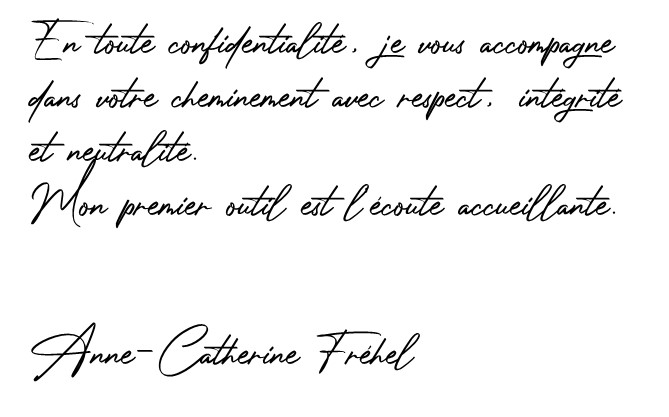 En toute confidentialité, je vous accompagne
dans votre cheminement avec respect, intégrité
et neutralité.
Mon premier outil est l'écoute accueillante.
Anne-Catherine Fréhel